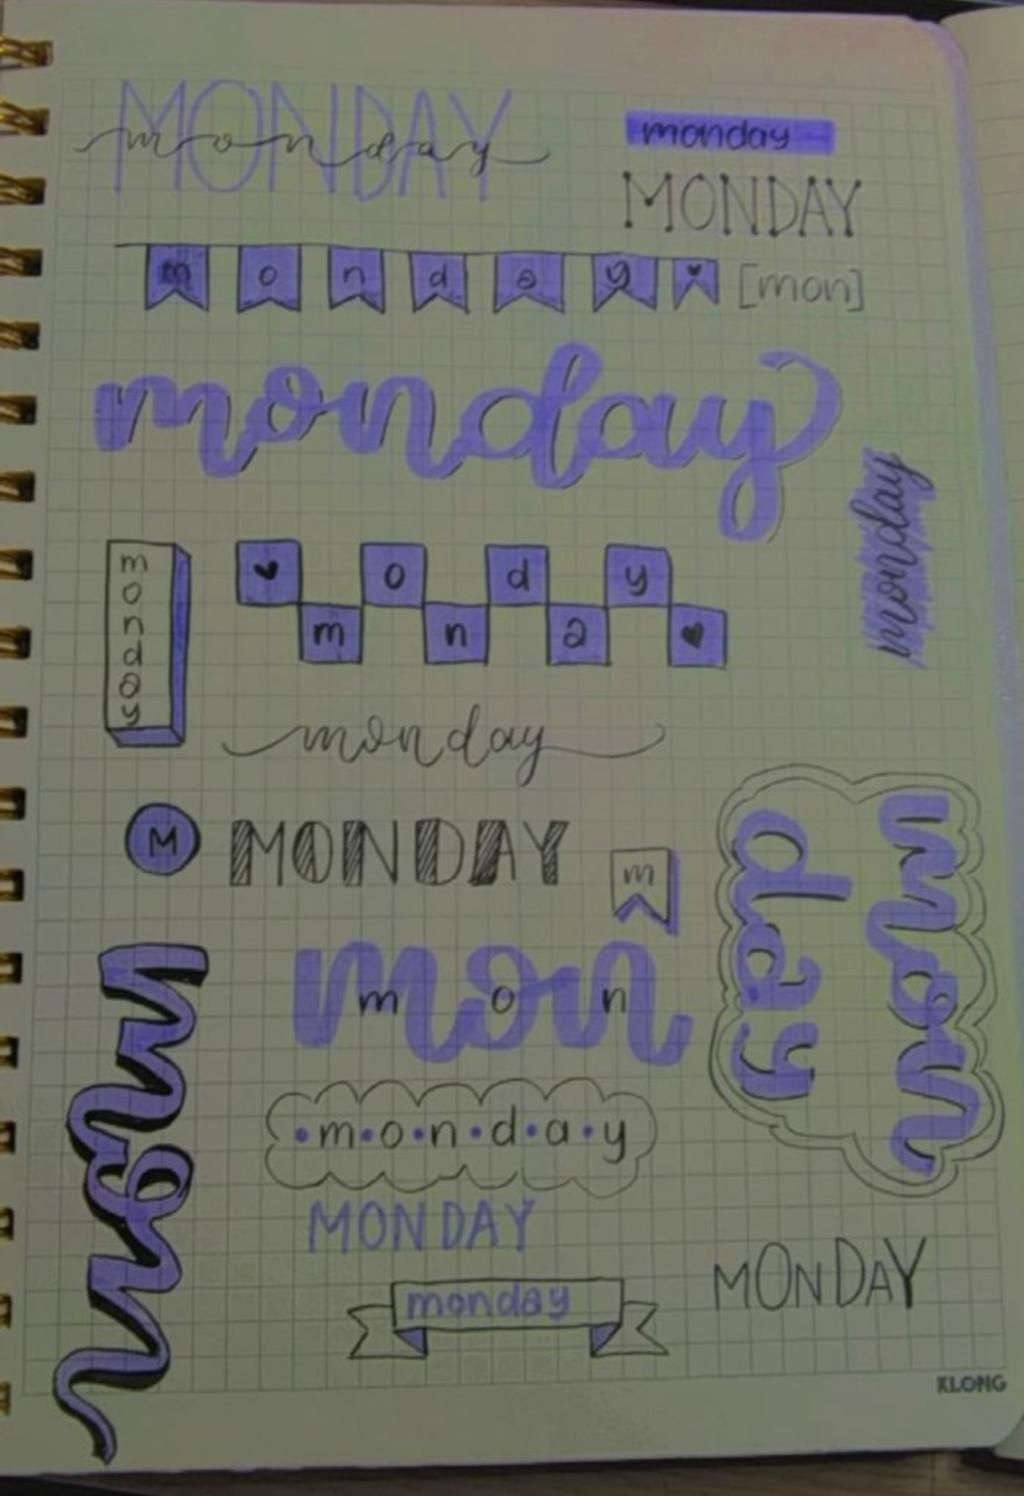 MONDAY
monday
monday
MONDAY
monday
[mon]
monday
monday
monday
monday
monday
M
MONDAY
m
mon
day
mon
m o n
mon
m·o·n·d·a·y
MONDAY
MONDAY
monday
KLONG